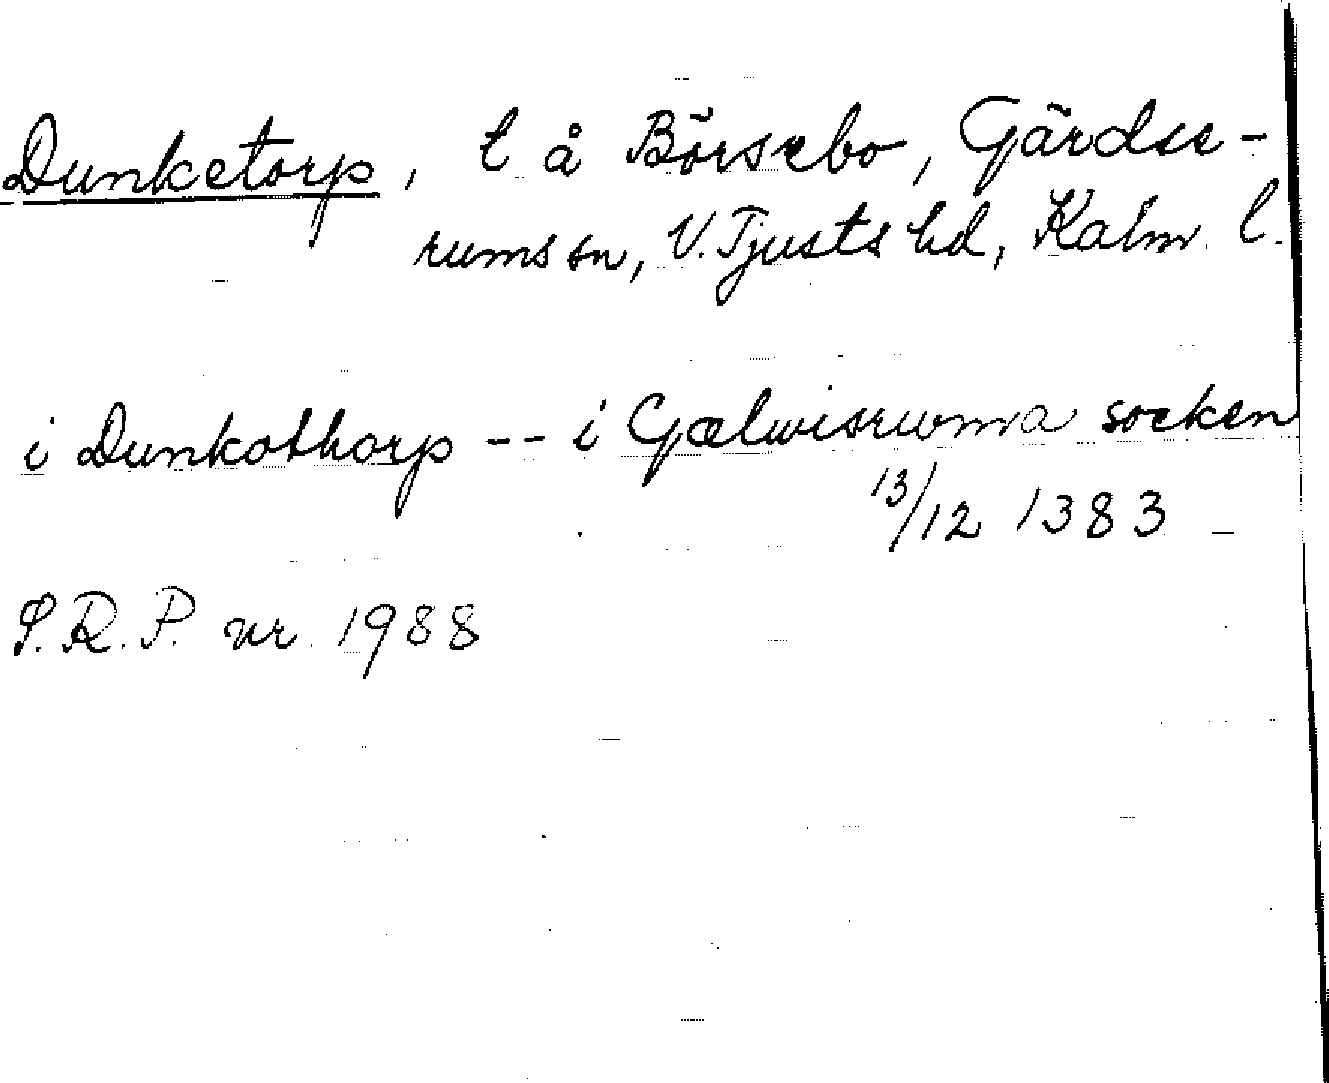 Dunketorp, t å Börsebo, Gärdse-
rums sn, V. Tjusts hd, Kalm. l.
i Dunkathorp -- i Gælwisrwma socken
13/12 1383
S.R.P. nr. 1988